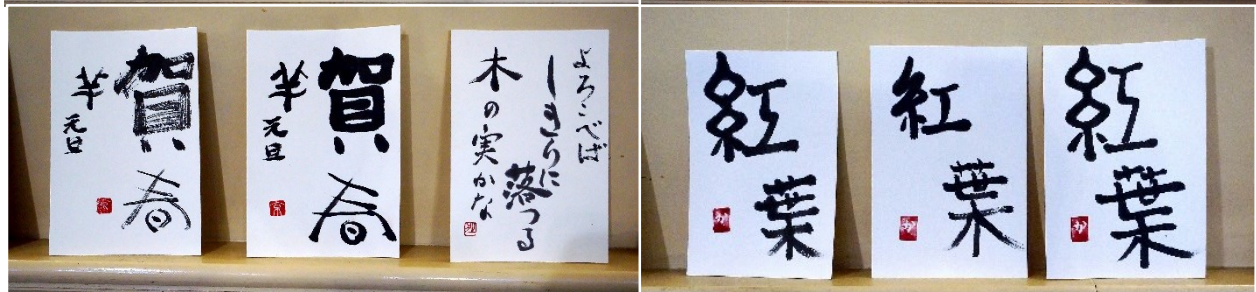 賀春
羊 元旦
賀春
羊 元旦
よろこべば
しきりに
落つる
木の実かな
紅葉
か
紅葉
か
紅葉
か